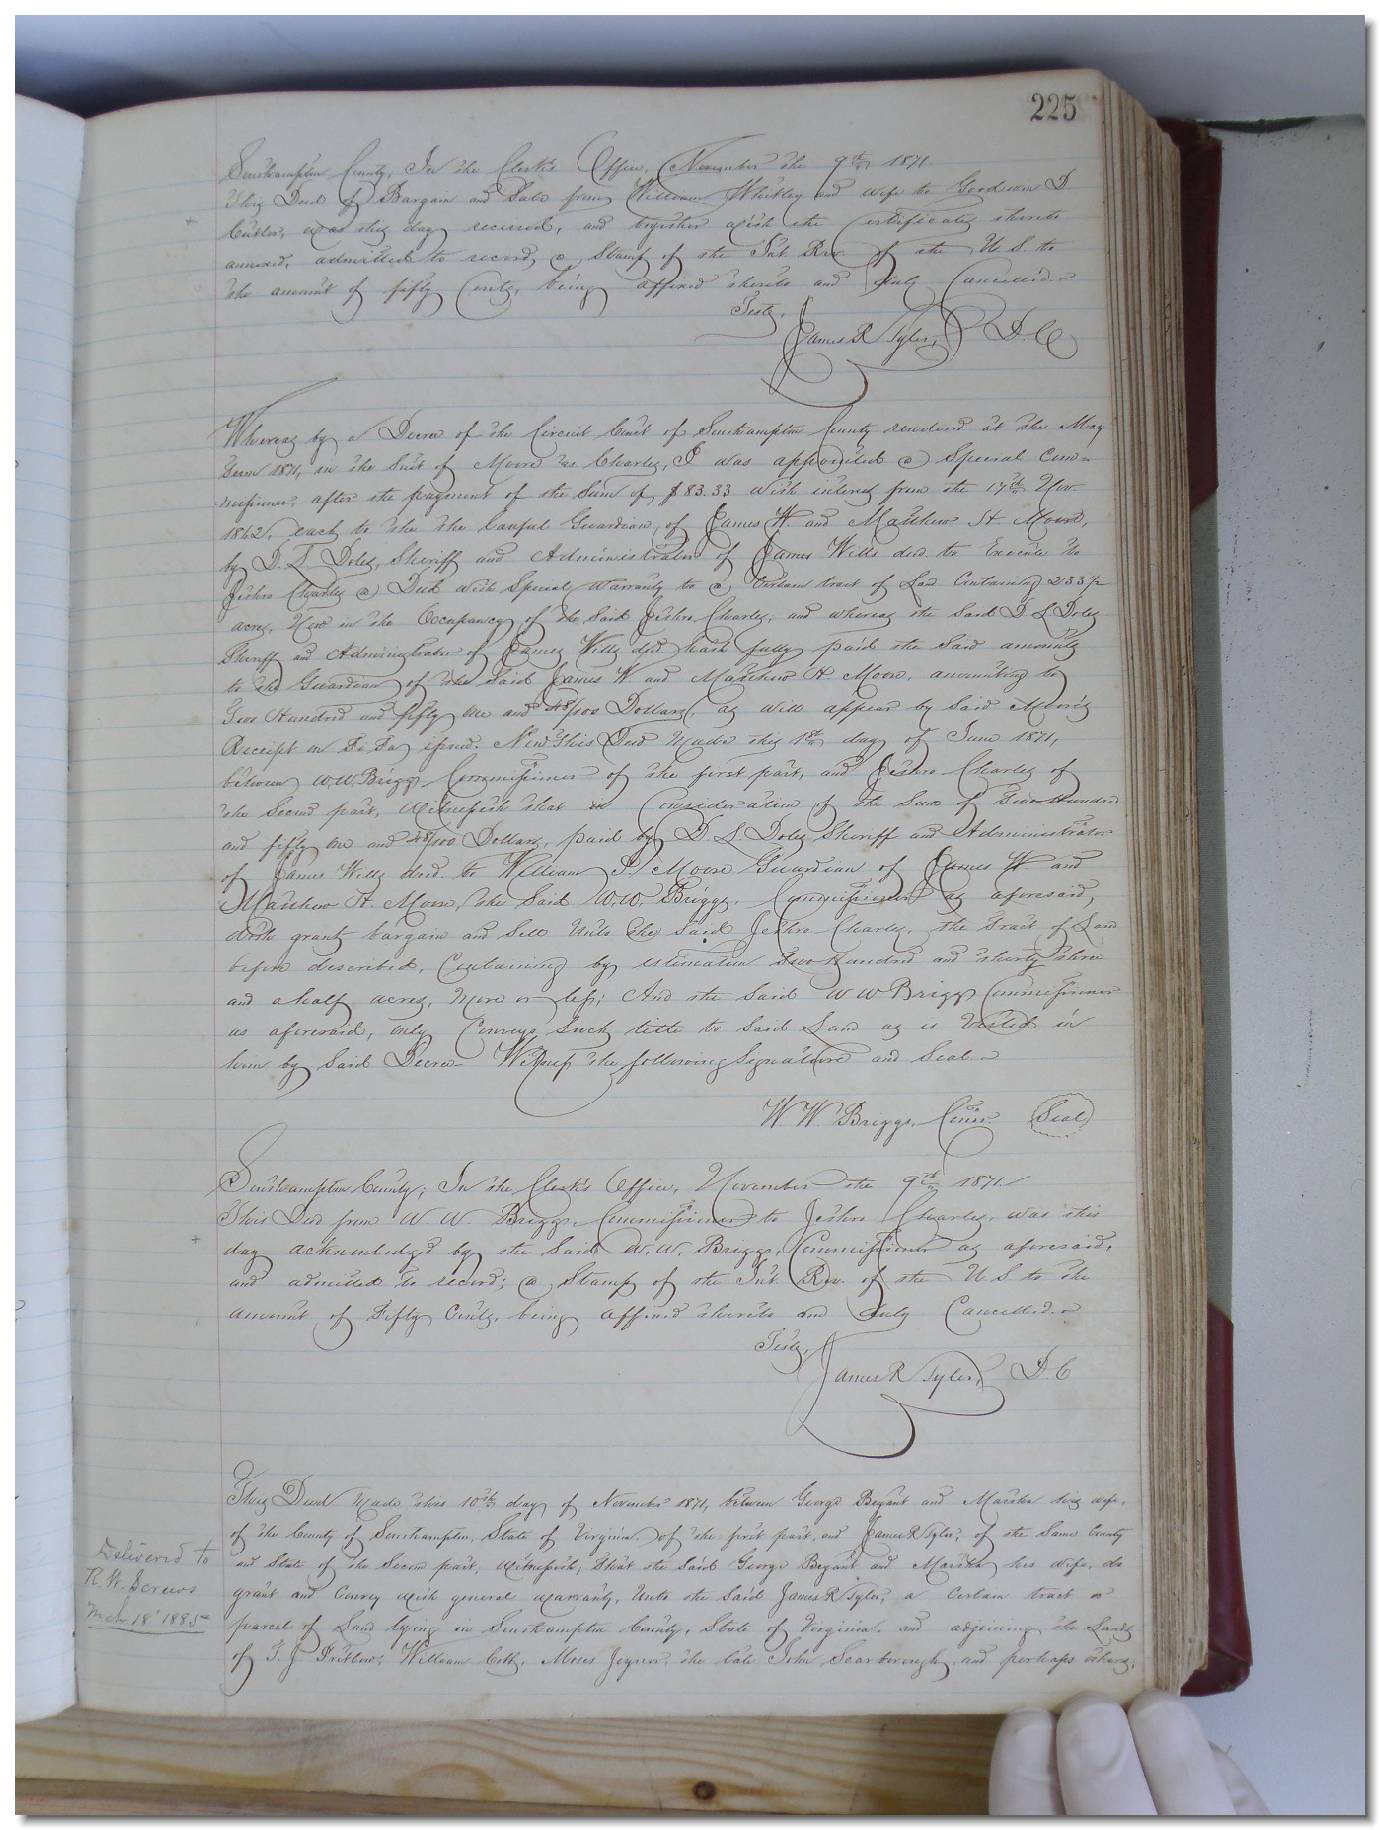 225
Southampton County, In the Clerk's Office, November the 9th 1871.
This Deed of Bargain and Sale from William Whitley and wife to Goodwin D.
Cutler, was this day received, and together with the certificates thereto
annexed, admitted to record, a Stamp of the Int. Rev. of the U.S. to
the amount of fifty Cents, being affixed thereto and duly Cancelled.
Teste,
James R Tyler, D.C.
Whereas by a Decree of the Circuit Court of Southampton County rendered at the May
term 1871, in the Suit of Moore vs Charles, I was appointed a Special Com=
missioner, after the payment of the Sum of $83.33 with interest from the 17th Nov.
1862, each to the the lawful Guardian, of James W. and Matthew H. Moore,
by D. L. Doles, Sheriff and Administrator of James Wills decd. to Execute to
Jethro Charles a Deed with Special Warranty to a certain tract of Land Containing 233 1/2
acres, Now in the Occupancy of the Said Jethro Charles, and whereas the Said D L Doles
Sheriff and Administrator of James Wills decd. hath fully paid the Said amounts
to the Guardian of the Said James W and Matthew H Moore, amounting to
Two Hundred and fifty one and 48/100 Dollars, as will appear by Said Moore's
Receipt on Fi. Fa. issued. Now This Deed Made this 1st day of June 1871,
between W.W. Briggs Commissioner of the first part, and Jethro Charles of
the Second part, Witnesseth that in Consideration of the Sum of Two Hundred
and fifty one and 48/100 Dollars, paid by D. L Doles Sheriff and Administrator
of James Wills decd. to William Moore Guardian of James W and
Matthew H. Moore, the Said W.W. Briggs, Commissioner as aforesaid,
doth grant, bargain and Sell Unto the Said Jethro Charles, the tract of Land
before described, Containing by estimation Two Hundred and thirty three
and a half acres, More or less; And the Said W W Briggs Commissioner
as aforesaid, only Conveys Such title to Said Land as is Vested in
him by Said Decree. Witness the following Signature and Seal
W. W. Briggs, Comr. Seal
Southampton County; In the Clerk's Office, November the 9th 1871.
This Deed from W. W. Briggs, Commissioner to Jethro Charles, was this
day acknowledged by the Said W. W. Briggs, Commissioner as aforesaid,
and admitted to record; a Stamp of the Int Rev. of the U S. to the
amount of Fifty Cents, being affixed thereto and duly Cancelled.
Teste,
James R Tyler, D.C
This Deed Made this 10th day of November 1871, between George Bryant and Martha his wife,
of the County of Southampton, State of Virginia, of the first part, and James R Tyler, of the Same County
and State of the Second part, Witnesseth, That the Said George Bryant and Martha his wife, do
grant and Convey with general Warranty, Unto the Said James R Tyler, a Certain tract or
parcel of Land lying in Southampton County, State of Virginia, and adjoining the Lands
of T. J Pretlow, William Cobb, Moses Joyner, the late John Scarborough, and perhaps others,
Delivered to
R. W. Screws
Mch 18" 1885